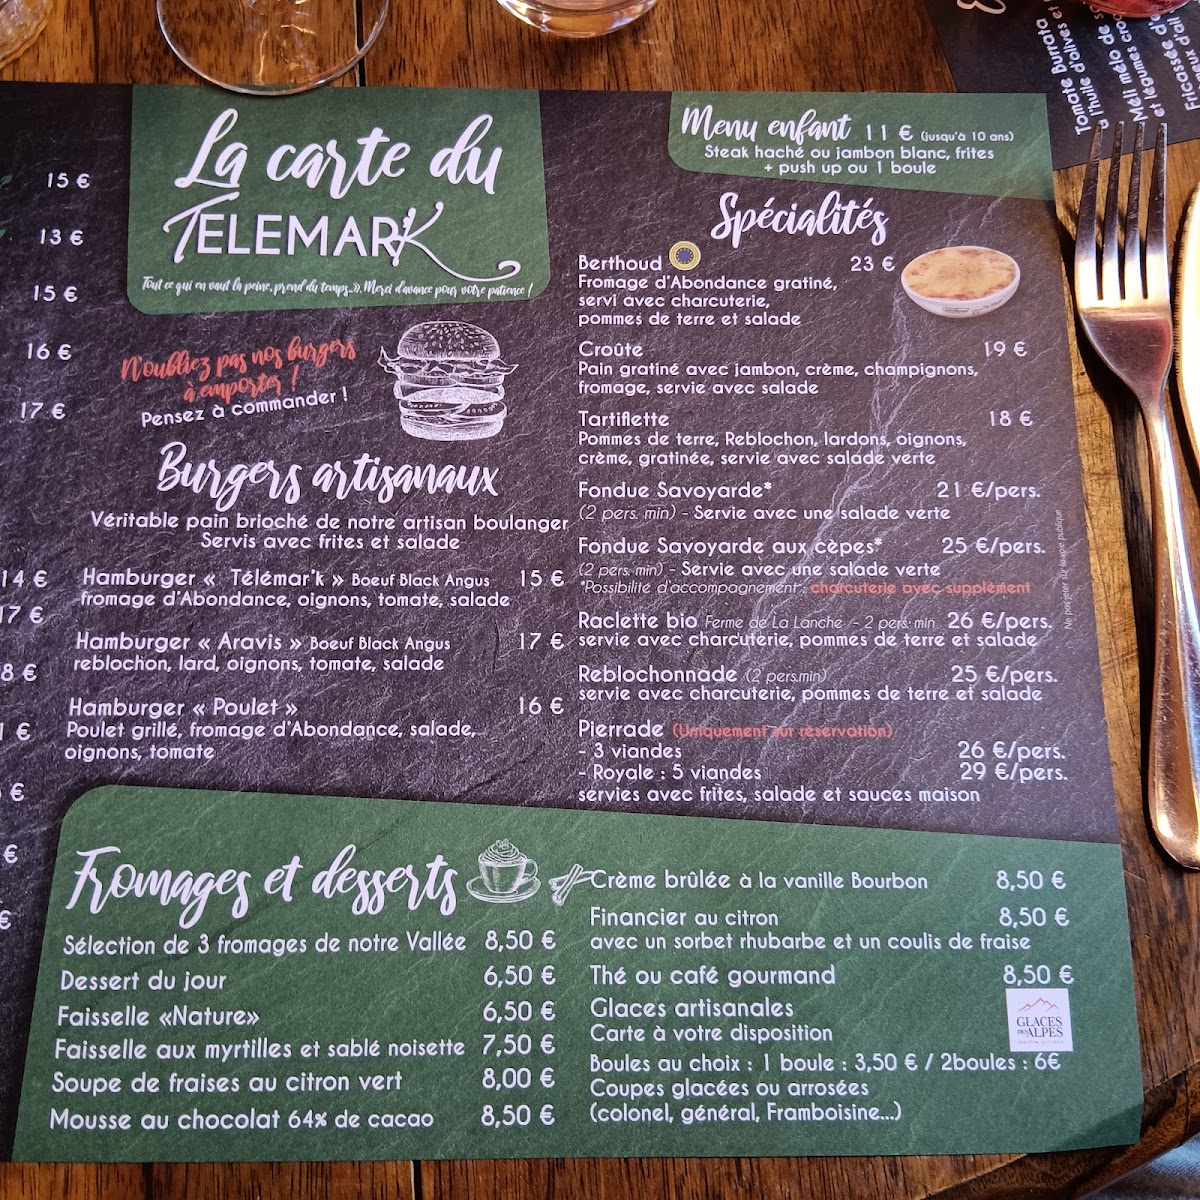 La carte du
TELEMARK
Tout ce qui en vaut la peine, prend du temps...». Merci d'avance pour votre patience !
15 €
13 €
15 €
16 €
17 €
14 €
17 €
8 €
1 €
€
€
€
N'oubliez pas nos burgers
à emporter !
Pensez à commander !
Burgers artisanaux
Véritable pain brioché de notre artisan boulanger
Servis avec frites et salade
Hamburger « Télémar'k » Boeuf Black Angus 15 €
fromage d'Abondance, oignons, tomate, salade
Hamburger « Aravis » Boeuf Black Angus 17 €
reblochon, lard, oignons, tomate, salade
Hamburger « Poulet » 16 €
Poulet grillé, fromage d'Abondance, salade,
oignons, tomate
Menu enfant 11 € (jusqu'à 10 ans)
Steak haché ou jambon blanc, frites
+ push up ou 1 boule
Spécialités
Berthoud 23 €
Fromage d'Abondance gratiné,
servi avec charcuterie,
pommes de terre et salade
Croûte 19 €
Pain gratiné avec jambon, crème, champignons,
fromage, servie avec salade
Tartiflette 18 €
Pommes de terre, Reblochon, lardons, oignons,
crème, gratinée, servie avec salade verte
Fondue Savoyarde* 21 €/pers.
(2 pers. min) - Servie avec une salade verte
Fondue Savoyarde aux cèpes* 25 €/pers.
(2 pers. min) - Servie avec une salade verte
*Possibilité d'accompagnement : charcuterie avec supplément
Raclette bio Ferme de La Lanche /- 2 pers. min 26 €/pers.
servie avec charcuterie, pommes de terre et salade
Reblochonnade (2 pers.min) 25 €/pers.
servie avec charcuterie, pommes de terre et salade
Pierrade (Uniquement sur réservation)
- 3 viandes 26 €/pers.
- Royale : 5 viandes 29 €/pers.
servies avec frites, salade et sauces maison
Ne pas jeter sur la voie publique
Fromages et desserts
Sélection de 3 fromages de notre Vallée 8,50 €
Dessert du jour 6,50 €
Faisselle «Nature» 6,50 €
Faisselle aux myrtilles et sablé noisette 7,50 €
Soupe de fraises au citron vert 8,00 €
Mousse au chocolat 64% de cacao 8,50 €
Crème brûlée à la vanille Bourbon 8,50 €
Financier au citron 8,50 €
avec un sorbet rhubarbe et un coulis de fraise
Thé ou café gourmand 8,50 €
Glaces artisanales
Carte à votre disposition
Boules au choix : 1 boule : 3,50 € / 2boules : 6€
Coupes glacées ou arrosées
(colonel, général, Framboisine...)
GLACES
DES ALPES
Tomate Burrata
à l'huile d'olives et
Méli mélo de
et légumes
Fricassée